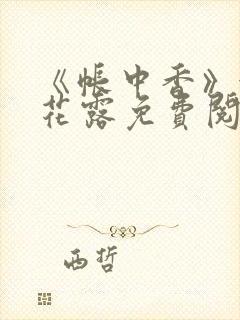 《帐中香》
花露免费阅
西哲